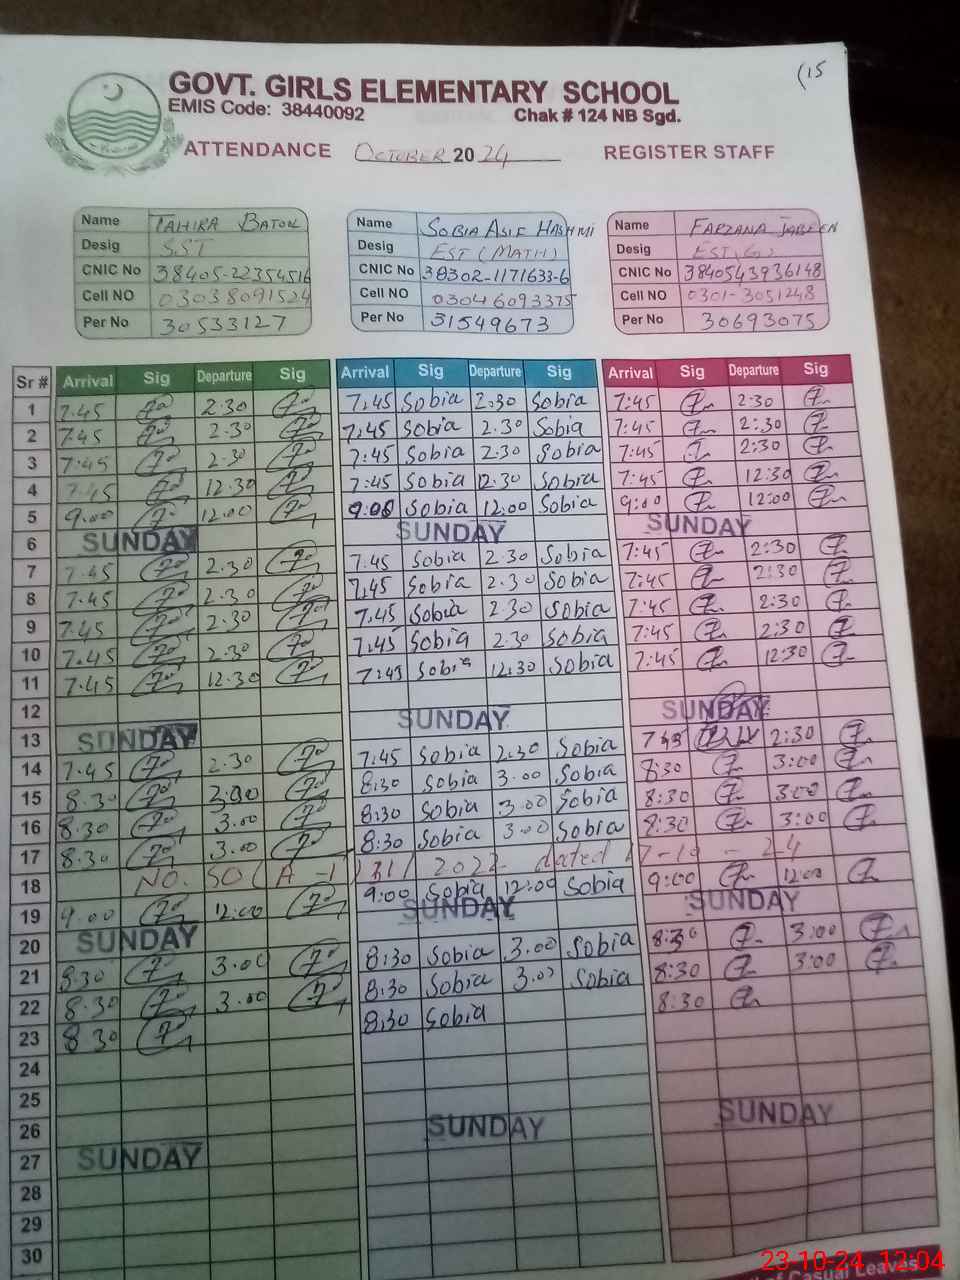 (15
GOVT. GIRLS ELEMENTARY SCHOOL
EMIS Code: 38440092 Chak # 124 NB Sgd.
ATTENDANCE OCTOBER 2024 REGISTER STAFF
Name TAHIRA BATOOL Name SOBIA ASIF HASHMI Name FARZANA JABEEN
Desig SST Desig EST (MATH) Desig EST
CNIC No 38405-22354516 CNIC No 38302-1171633-6 CNIC No 3840543936148
Cell NO 03038091524 Cell NO 03046093375 Cell NO 0301-3051248
Per No 30533127 Per No 31549673 Per No 30693075
Sr # Arrival Sig Departure Sig Arrival Sig Departure Sig Arrival Sig Departure Sig
1 7.45 2.30 7.45 Sobia 2.30 Sobia 7:45 2:30
2 7.45 2.30 7.45 Sobia 2.30 Sobia 7:45 2:30
3 7:45 2.30 7:45 Sobia 2.30 Sobia 7:45 2:30
4 7.45 12.30 7:45 Sobia 12.30 Sobia 7:45 12:30
5 9.00 12.00 9:00 Sobia 12.00 Sobia 9:00 12:00
6 SUNDAY SUNDAY SUNDAY
7 7.45 2.30 7.45 Sobia 2.30 Sobia 7:45 2:30
8 7.45 2.30 7.45 Sobia 2.30 Sobia 7:45 2:30
9 7.45 2.30 7.45 Sobia 2.30 Sobia 7:45 2:30
10 7.45 2.30 7.45 Sobia 2.30 Sobia 7:45 2:30
11 7.45 12.30 7:45 Sobia 12.30 Sobia 7:45 12:30
12
13 SUNDAY SUNDAY SUNDAY
14 7.45 2.30 7.45 Sobia 2.30 Sobia 7:45 2:30
15 8.30 3.00 8:30 Sobia 3.00 Sobia 8:30 3:00
16 8.30 3.00 8:30 Sobia 3.00 Sobia 8:30 3:00
17 8.30 3.00 8:30 Sobia 3.00 Sobia 8:30 3:00
18 NO. SO( A - 1 ) 31/ 2022 dated 17-10-24
19 9.00 12:00 9:00 Sobia 12:00 Sobia 9:00 12:00
20 SUNDAY SUNDAY SUNDAY
21 8.30 3.00 8:30 Sobia 3.00 Sobia 8:30 3:00
22 8.30 3.00 8:30 Sobia 3.00 Sobia 8:30 3:00
23 8 30 8:30 Sobia 8:30
24
25
26
27 SUNDAY SUNDAY SUNDAY
28
29
30
of Casual Leaves
23-10-24 12:04